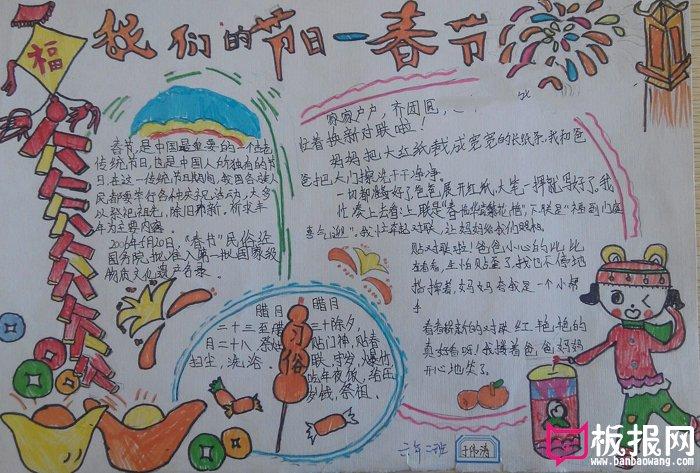 我们的节日一春节
福
春节,是中国最重要的一个古老
传统节日,也是中国人所独有的节
日。在这一传统节日期间,我国各族人
民都要举行各种庆祝活动,大多
以祭祀祖先、除旧布新、祈求丰
年为主要内容。
2006年5月20日,“春节”民俗经
国务院批准列入第一批国家级
物质文化遗产名录。
家家户户,齐团圆,
忙着换新对联啦!
妈妈把大红纸裁成宽宽的长纸条,我和爸
爸把大门擦洗干干净净。
一切都准备好了,爸爸展开红纸,大笔一挥就写好了。我
忙凑上去看:上联是“春
我忙举起对联,让妈妈给我们照相。
贴对联啦!爸爸小心的比比
左看看,生怕贴歪了,我也不停地
指挥着,妈妈夸我是一个小帮
手
看着崭新的对联红艳艳的
真好看呀!我搂着爸爸妈妈
开心地笑了。
习俗
腊月
二十三
二十八
扫尘,洗浴。
腊月
三十除夕,
贴门神,贴春
联,守岁,爆竹
吃年夜饭,给压
岁钱,祭祖。
六年二班
板报网
www.banbaowang.com